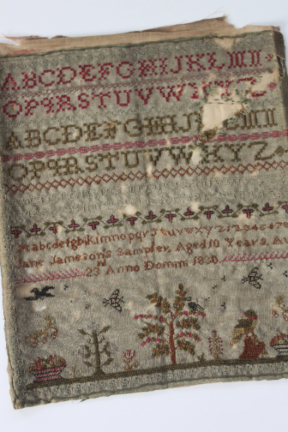 ABCDEFGHIJKLM
OPQRSTUVWXYZ
ABCDEFGHIJKLM
OPQRSTUVWXYZ
abcdefghiklmnopqrstuvwxyz 1234567
Jane Jameson's Sampler, Aged 10 Years, Au
23 Anno Domini